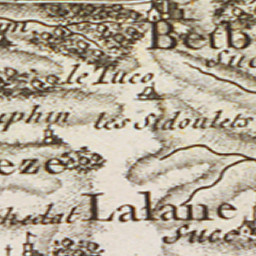 Betb
Suc
le Tuco
uphin
les Sidoulets
eze
chedat
Lalane
Succ